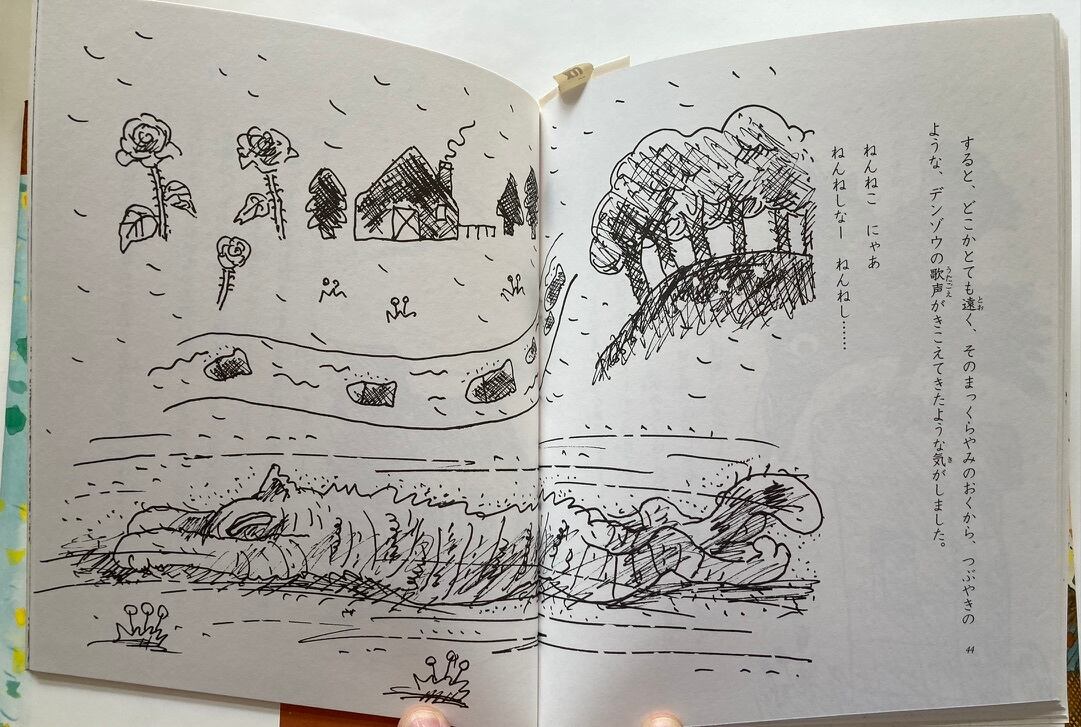 すると、どこかとても遠く、そのまっくらやみのおくから、つぶやきの
ような、デンゾウの歌声がきこえてきたような気がしました。
ねんねこ　にゃあ
ねんねしなー　ねんねし……
44